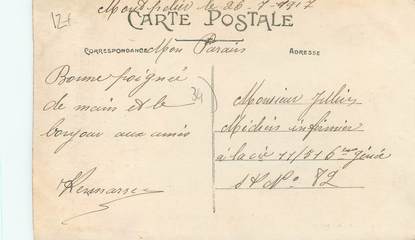 12+
Montpellier le 26-7-1917
CARTE POSTALE
CORRESPONDANCE
Mon Parain
ADRESSE
Bonne poignée
de main et le
bonjour aux amis
34
Monsieur
Médecin infirmier
à la 11/51 6ème génie
N° 82